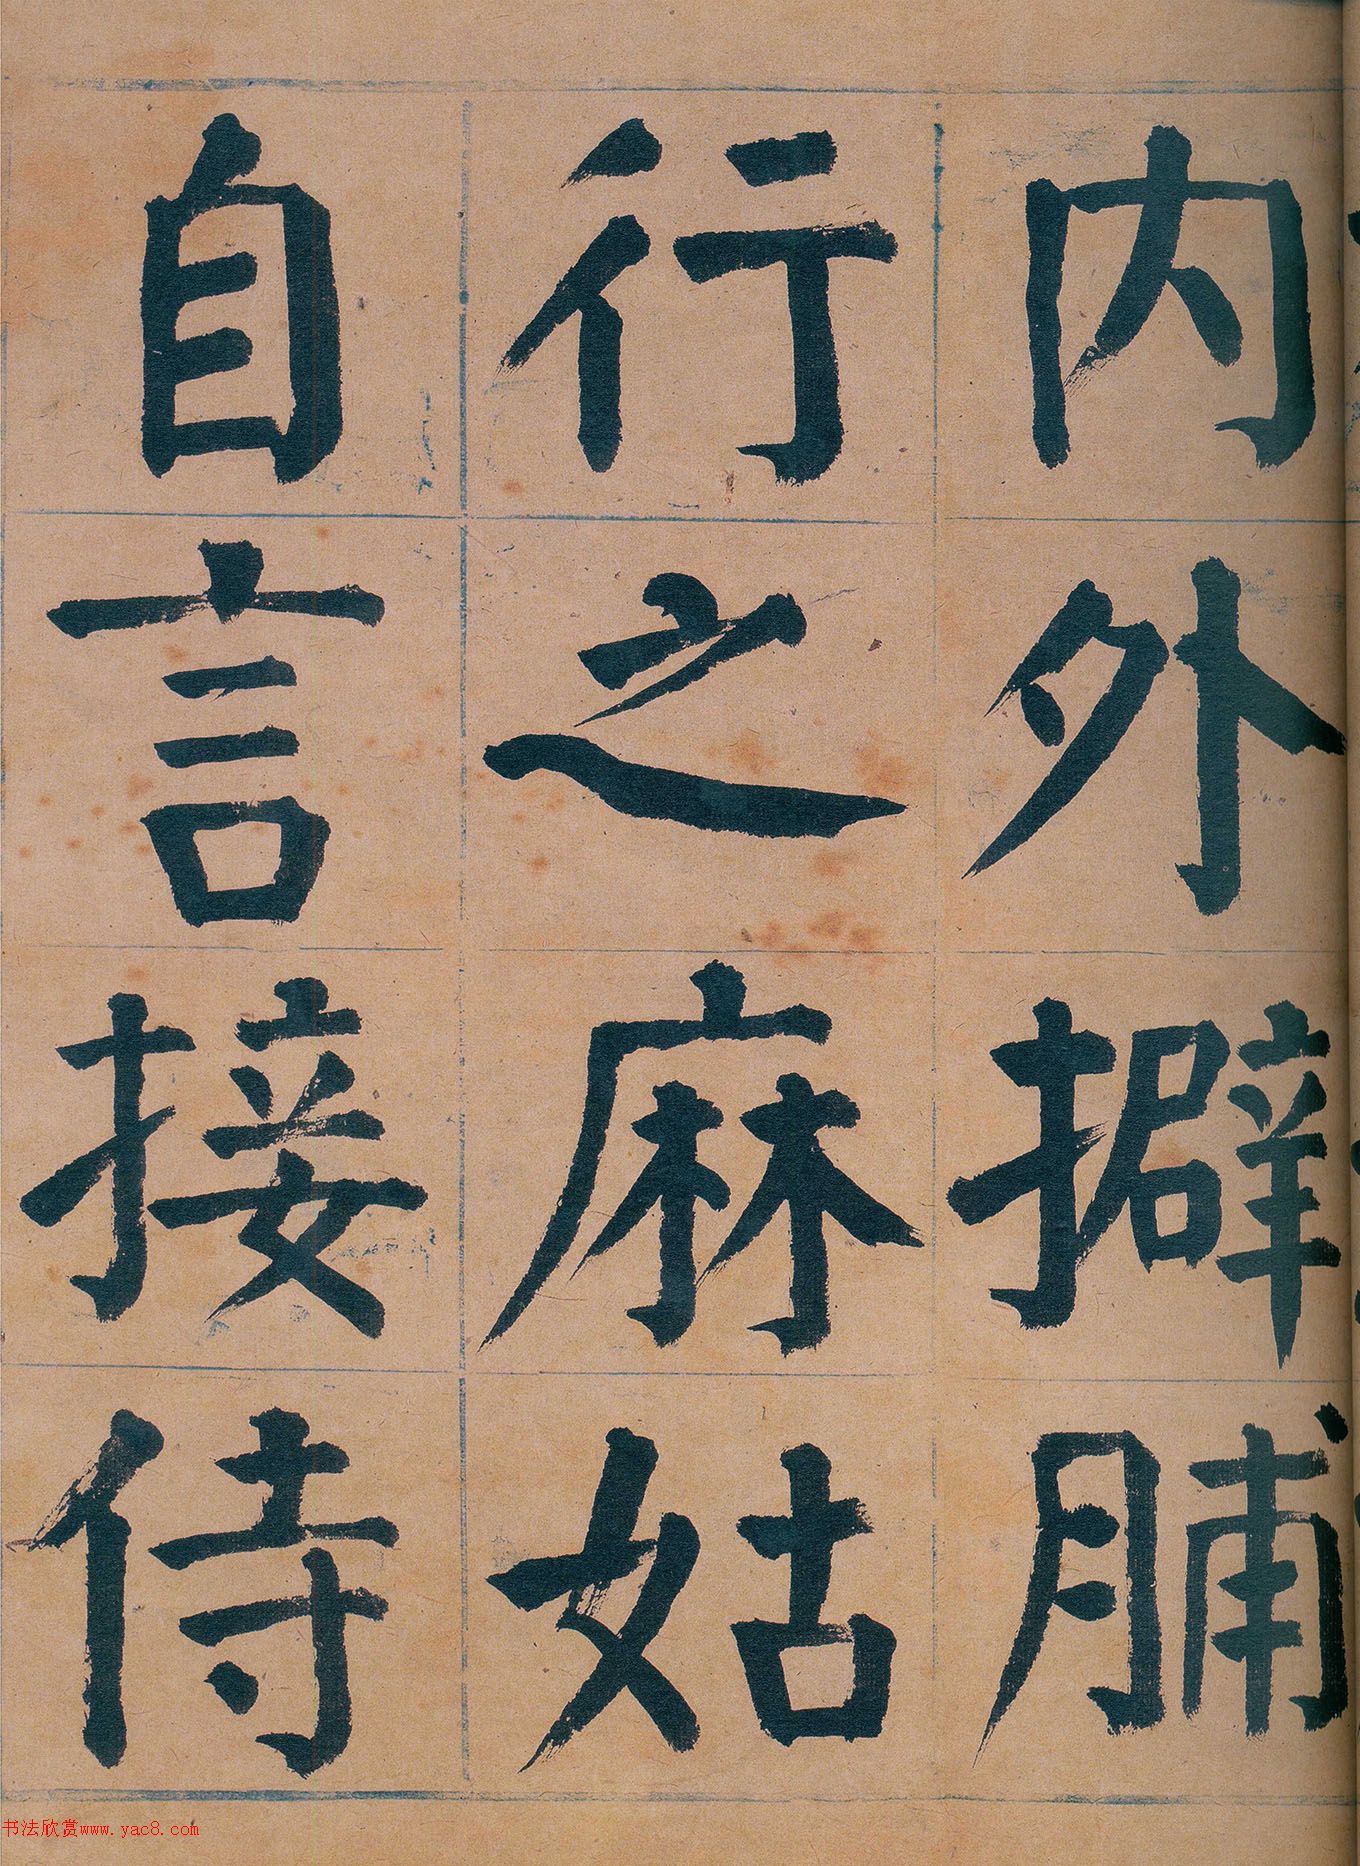 内外擗脯
行之麻姑
自言接侍
书法欣赏www.yac8.com